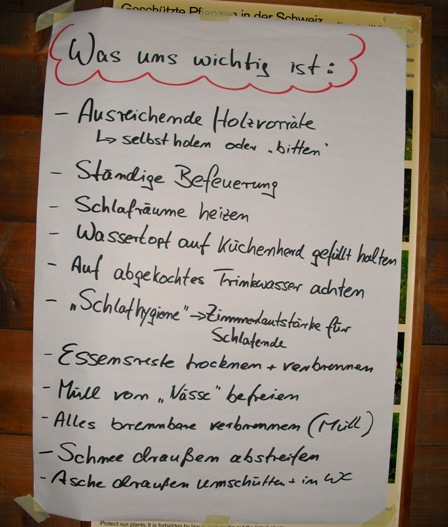 Geschützte Pflanzen in der Schweiz
Was uns wichtig ist:
- Ausreichende Holzvorräte
↳ selbst holen oder „bitten"
- Ständige Befeuerung
- Schlafräume heizen
- Wassertopf auf Küchenherd gefüllt halten
- Auf abgekochtes Trinkwasser achten
- „Schlafhygiene" → Zimmerlautstärke für
Schlafende
- Essensreste trocknen + verbrennen
- Müll vom „Nässe" befreien
- Alles brennbare verbrennen (Müll)
- Schnee draußen abstreifen
- Asche draußen umschütten + im WC
Protect our plants. It is forbidden